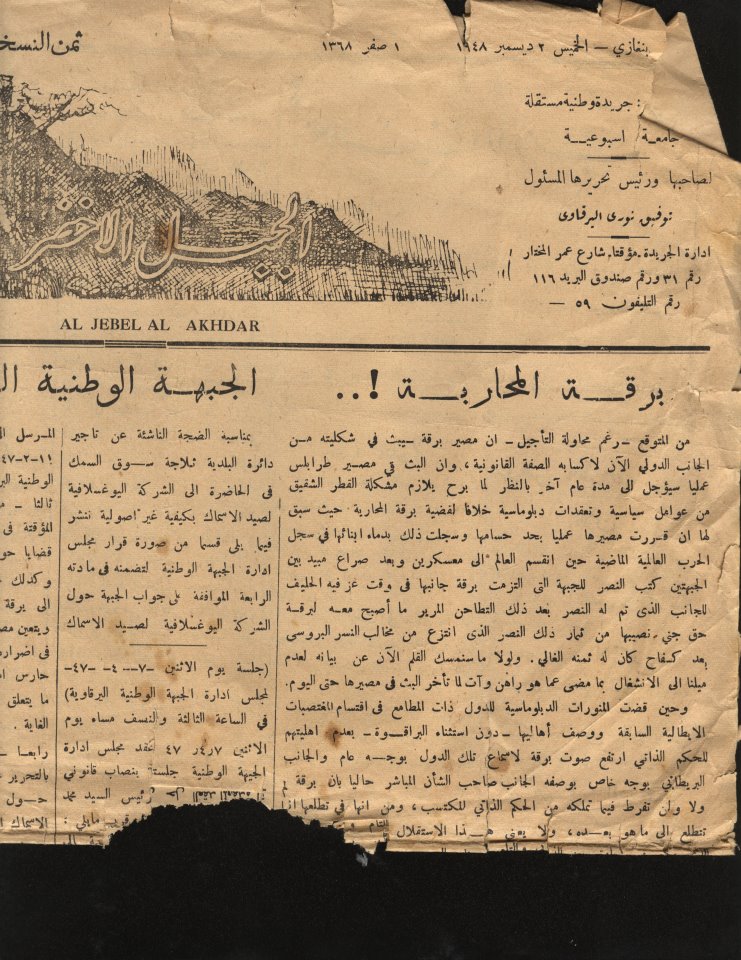 بنغازي – الخميس ٢ ديسمبر ١٩٤٨
١ صفر ١٣٦٨
ثمن النسخ
جريدة وطنية مستقلة :
جامعة اسبوعية
لصاحبها ورئيس تحريرها المسئول
توفيق نورى البرقاوى
ادارة الجريدة مؤقتا ـ شارع عمر المختار
رقم ٣١ ورقم صندوق البريد ١١٦
رقم التليفون ٥٩ —
الجبل الاخضر
AL JEBEL AL AKHDAR
برقة المحاربة !..
من المتوقع – رغم محاولة التأجيل – ان مصير برقة يبث في شكليته من
الجانب الدولي الآن لاكسابه الصفة القانونية ، وان البث في مصير طرابلس
عمليا سيؤجل الى مدة عام آخر بالنظر لما برح يلازم مشكلة القطر الشقيق
من عوامل سياسية وتعقدات دبلوماسية خلافا لقضية برقة المحاربة حيث سبق
لها ان قررت مصيرها عمليا بحد حسامها وسجلت ذلك بدماء ابنائها في سجل
الحرب العالمية الماضية حين انقسم العالم الى معسكرين وبعد صراع مبيد بين
الجبهتين كتب النصر للجبهة التى التزمت برقة جانبها في وقت عز فيه الحليف
للجانب الذى تم له النصر بعد ذلك التطاحن المرير ما أصبح معه لبرقة
حق جني نصيبها من ثمار ذلك النصر الذى انتزع من مخالب النسر البروسى
بعد كفاح كان له ثمنه الغالي . ولولا ما سنمسك القلم الآن عن بيانه لعدم
ميلنا الى الانشغال بما مضى عما هو راهن وآت لما تأخر البث في مصيرها حتى اليوم .
وحين قضت المنورات الدبلوماسية للدول ذات المطامع في اقتسام المغتصبات
الايطالية السابقة ووصف أهاليها – دون استثناء البراقوة – بعدم اهليتهم
للحكم الذاتي ارتفع صوت برقة لاسماع تلك الدول بوجه عام والجانب
البريطاني بوجه خاص بوصفه الجانب صاحب الشأن المباشر حاليا بان برقة لم
ولا ولن تفرط فيما تملكه من الحكم الذاتي المكتسب ، ومن انها في تطلعها انما
تتطلع الى ما هو بعده ، ولا يعنى هذا الاستقلال التام
الجبهة الوطنية ال
بمناسبة الضجة الناشئة عن تاجير
دائرة البلدية ثلاجة سوق السمك
فى الحاضرة الى الشركة اليوغسلافية
لصيد الاسماك بكيفية غير اصولية ننشر
فيما يلى قسما من صورة قرار مجلس
ادارة الجبهة الوطنية لتضمنه فى مادته
الرابعة الموافقة على جواب الجبهة حول
الشركة اليوغسلافية لصيد الاسماك
(جلسة يوم الاثنين ٧–٤–٤٧–
لمجلس ادارة الجبهة الوطنية البرقاوية)
في الساعة الثالثة والنصف مساء يوم
الاثنين ٧ر٤ر٤٧ عقد مجلس ادارة
الجبهة الوطنية جلسته بنصاب قانوني
رئيس السيد محمد
مايلى :
المرسل ال
١١–٢–٤٧
الوطنية البر
ثالثا –
المؤقتة فى
قضايا حو
وكذلك
الى برقة
ويتعين مص
فى اضراره
حارس ا
ما يتعلق
الغاية .
رابعا –
بالتحرير
حول
الاسماك ا